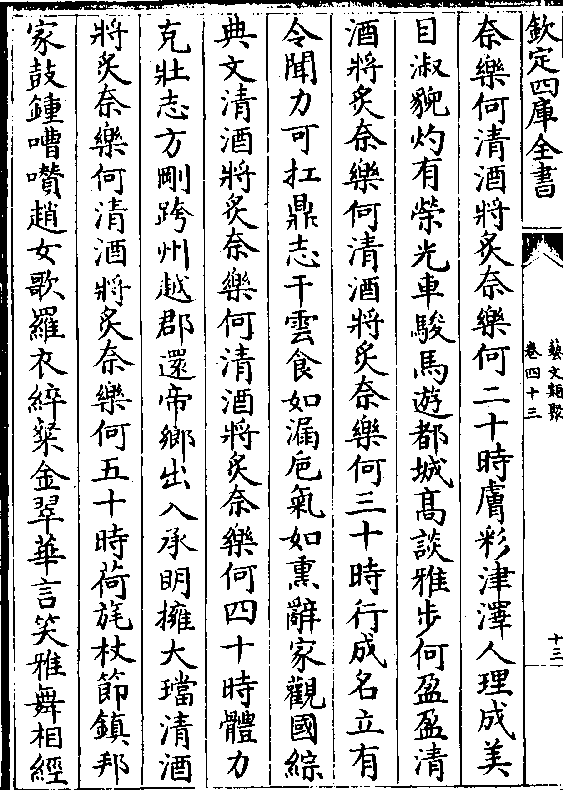 欽定四庫全書
藝文類聚
卷四十三
十三
奈樂何清酒將炙奈樂何二十時膚彩津澤人理成美
目淑貌灼有榮光車駿馬遊都城髙談雅步何盈盈清
酒將炙奈樂何清酒將炙奈樂何三十時行成名立有
令聞力可扛鼎志干雲食如漏巵氣如熏辭家觀國綜
典文清酒將炙奈樂何清酒將炙奈樂何四十時體力
克壯志方剛跨州越郡還帝鄉出入承明擁大璫清酒
將炙奈樂何清酒將炙奈樂何五十時荷旄杖節鎮邦
家鼓鍾嘈囋趙女歌羅衣綷粲金翠華言笑雅舞相經